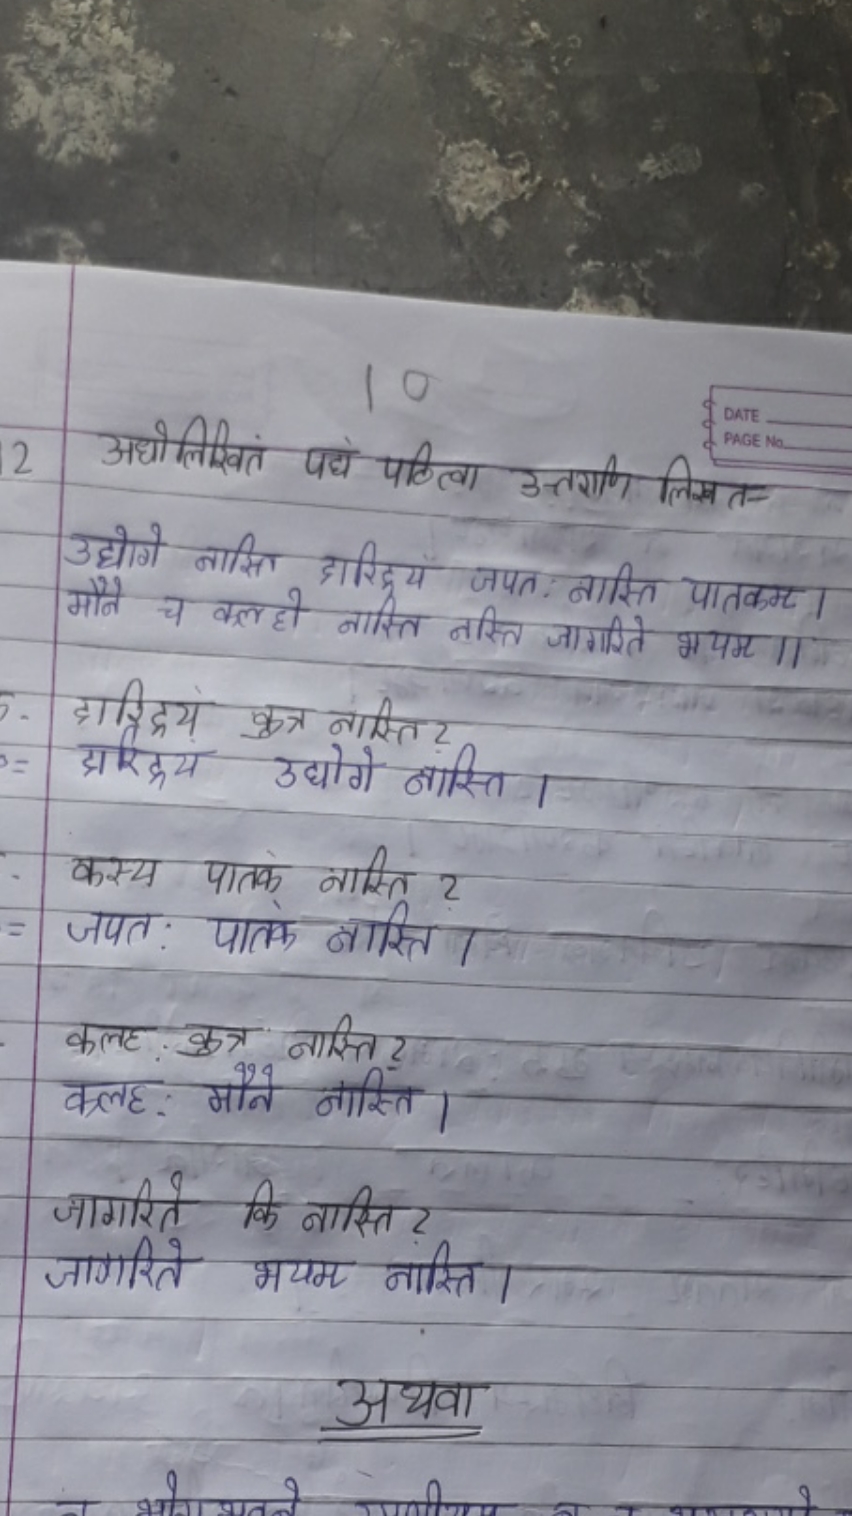 10
DATE
PAGE No.
12 अधोलिखितं पद्यं पठित्वा उत्तराणि लिखत=
उद्योगे नास्ति दारिद्रयं जपत: नास्ति पातकम् ।
मौने च कलहो नास्ति नस्ति जागरिते भयम् ।।
दारिद्रयं कुत्र नास्ति?
दारिद्रय उद्योगे नास्ति ।
कस्य पातकं नास्ति ?
जपत: पातकं नास्ति ।
कलह: कुत्र नास्ति?
कलह: मौने नास्ति ।
जागरिते कि नास्ति?
जागरिते भयम् नास्ति ।
अथवा